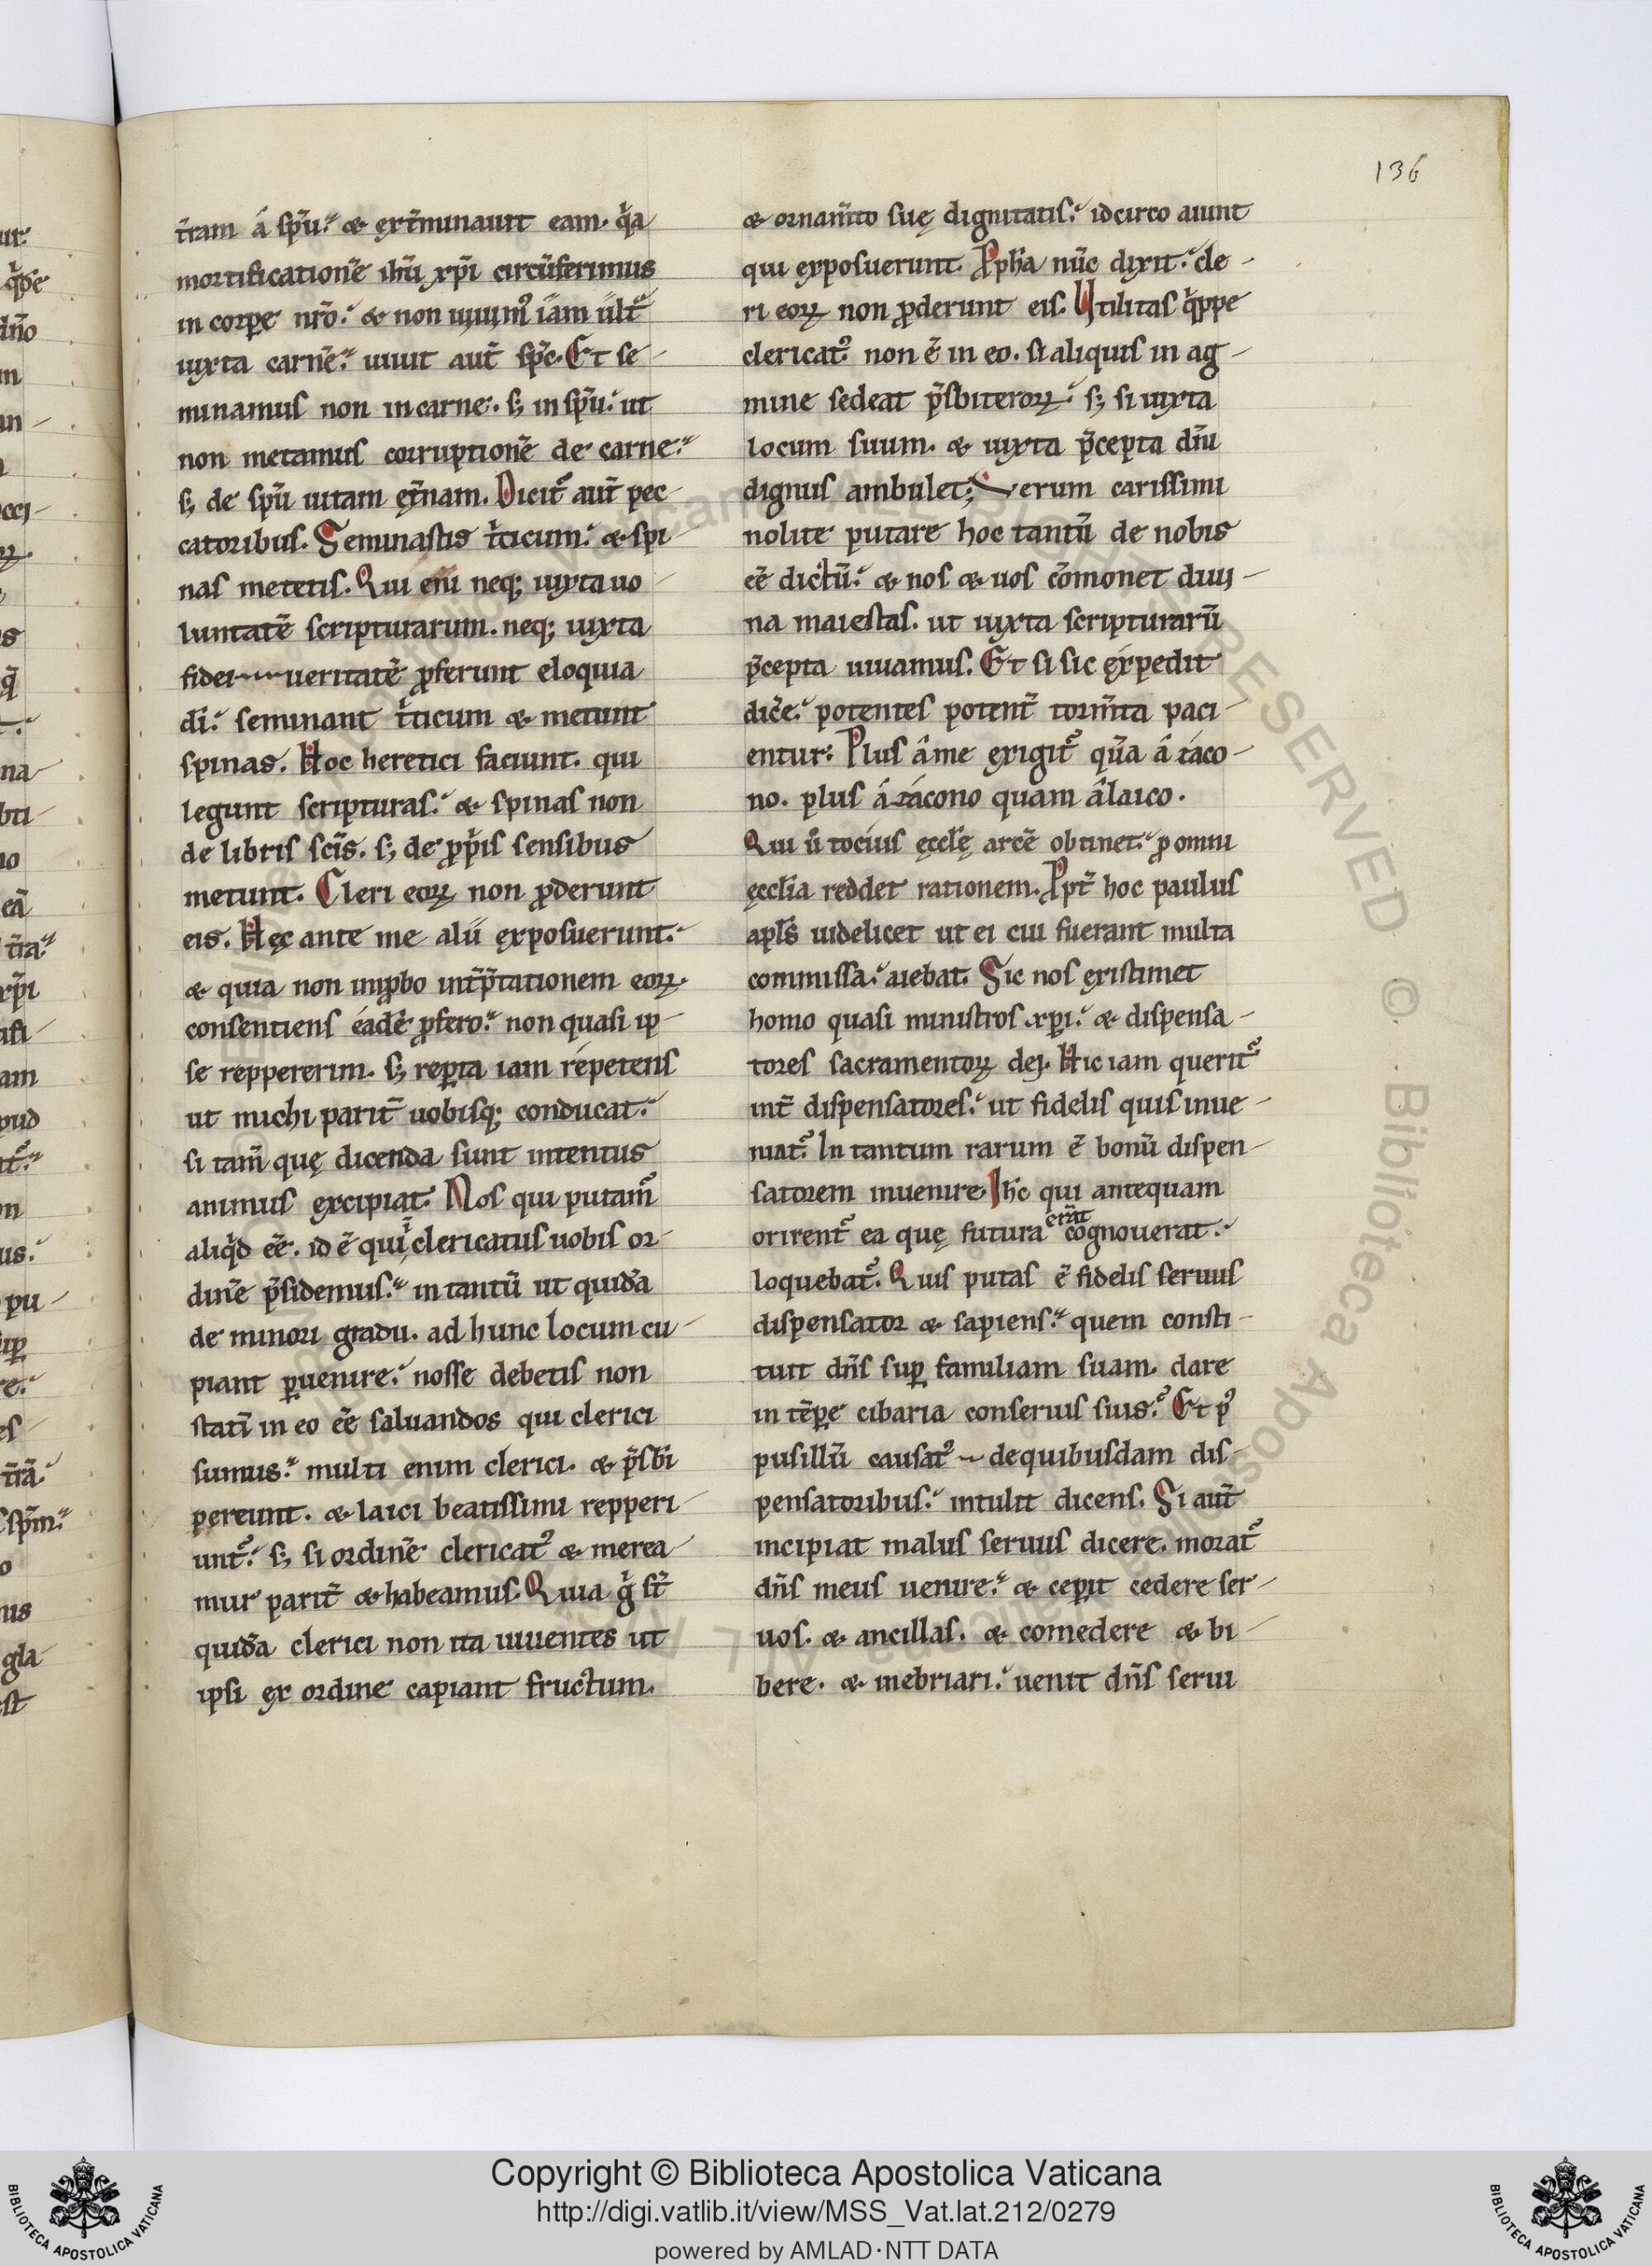 136
t̄ram á sp̄u. & ext̄minauit eam. q̇a
mortificationē ih̄u xp̄i circūferimus
in corpe nr̄o. & non uiuimꝰ iam ult̃
iuxta carnē. uiuit aut̄ sp̄c. Et se-
minamus non in carne. s; in sp̄u. ut
non metamus corruptionē de carne.
s; de sp̄u uitam ęt̄nam. Dicit̃ aut̄ pec
catoribus. Seminastis t̄ticum. & spi-
nas metetis. Qui eni neq; iuxta uo-
luntatē scripturarum. neq; iuxta
fidei ueritatē ꝓferunt eloquia
dī. seminant t̄ticum & metunt
spinas. Hoc heretici faciunt. qui
legunt scripturas. & spinas non
de libris scīs. s; de ꝓpīs sensibus
metunt. Cleri eoꝝ non ꝓderunt
eis. Hęc ante me alii exposuerunt.
& quia non inꝓbo int̄p̄tationem eoꝝ.
consentiens eadē ꝓfero. non quasi ip-
se reppererim. s; reꝑta iam repetens
ut michi parit̄ uobisq; conducat.
si tam̄ quę dicenda sunt intentus
animus excipiat. Nos qui putam̃
aliq̇d eē. id ē qui ī clericatus uobis or-
dinē p̄sidemus. in tantū ut quidā
de minori gradu. ad hunc locum cu-
piant ꝑuenire. nosse debetis non
statī in eo eē saluandos qui clerici
sumus. multi enim clerici. & p̄sbī
pereunt. & laici beatissimi repperi-
unt̃. s; si ordinē clericatꝰ & merea-
mur parit̄ & habeamus. Quia g̊ st̄
quidā clerici non ita uiuentes ut
ipsi ex ordine capiant fructum.
& ornam̄to suę dignitatis. idcirco aiunt
qui exposuerunt. Ꝓph̄a nūc dixit. cle-
ri eoꝝ non ꝓderunt eis. Utilitas q̇ppe
clericatꝰ non ē in eo. si aliquis in ag-
mine sedeat p̄sbiteroꝝ. s; si iuxta
locum suum. & iuxta p̄cepta diu
dignus ambulet; Verum carissimi
nolite putare hoc tantū de nobis
eē dictū. & nos & uos cōmonet diui-
na maiestas. ut iuxta scripturarū
p̄cepta uiuamus. Et si sic expedit
dicē. potentes potent̄ torm̄ta paci-
entur. Plus â me exigit̃ qūa â záco-
no. plus á zácono quam âlaico.
Qui ů tocius ęcclę arcē obtinet. ꝓ omni
ęcclīa reddet rationem. Ꝓpt̄ hoc paulus
apl̄s uidelicet ut ei cui fuerant multa
commissa. aiebat. Sic nos existimet
homo quasi ministros xp̄i. & dispensa-
tores sacramentoꝝ dei. Hic iam querit̃
int̄ dispensatores. ut fidelis quis inue-
niat̃. In tantum rarum ē bonū dispen-
satorem inuenire. Ih̄c qui antequam
orirent̃ ea quę futura erāt cognouerat.
loquebat̃. Quis putas ē fidelis seruus
dispensator & sapiens. quem consti-
tuit dn̄s suꝑ familiam suam. dare
in tēꝑe cibaria conseruis suis. Et pꝰ
pusillū causatꝰ de quibusdam dis-
pensatoribus. intulit dicens. Si aut̄
incipiat malus seruus dicere. morat̃
dn̄s meus uenire. & ceꝑit cedere ser-
uos. & ancillas. & comedere & bi-
bere. & inebriari. uenit dn̄s serui
Copyright © Biblioteca Apostolica Vaticana
http://digi.vatlib.it/view/MSS_Vat.lat.212/0279
powered by AMLAD·NTT DATA
BIBLIOTECA APOSTOLICA VATICANA
BIBLIOTECA APOSTOLICA VATICANA